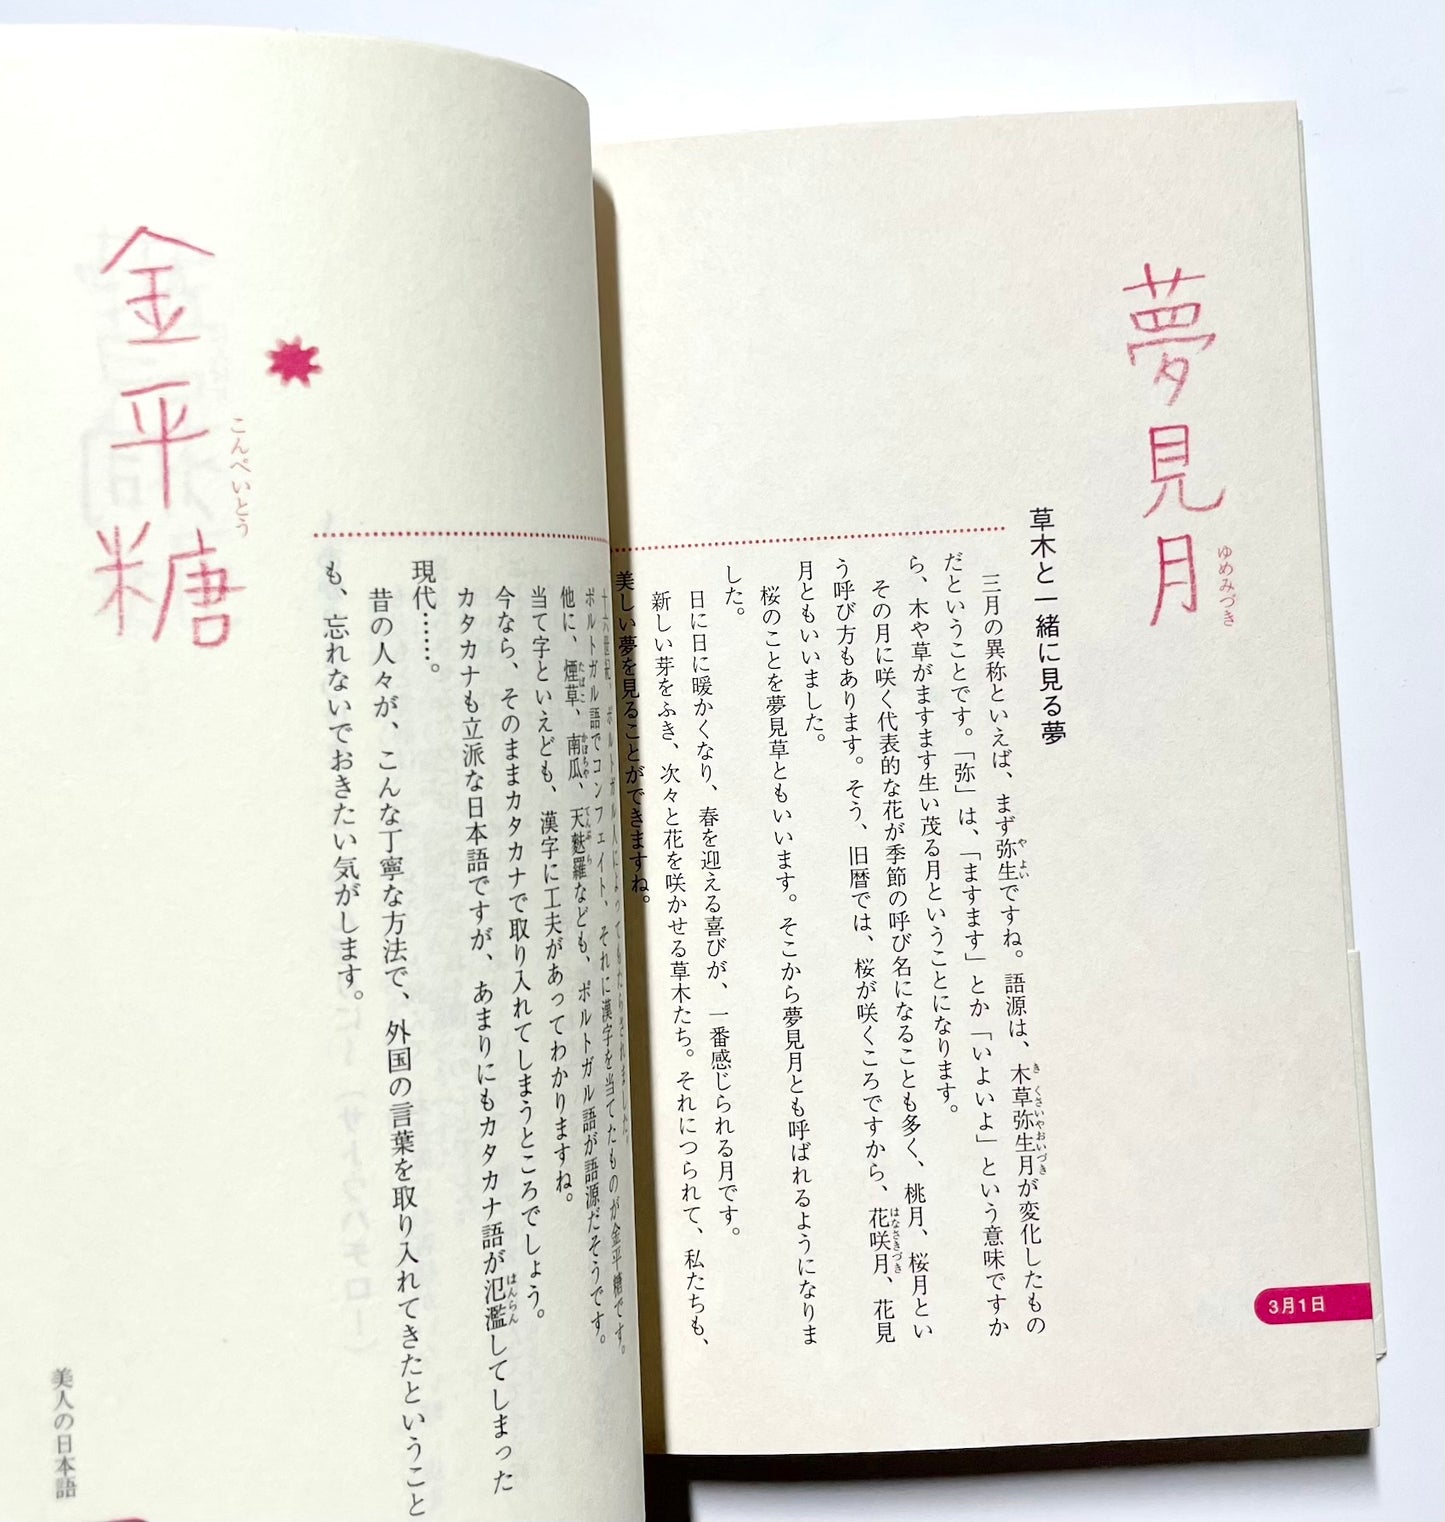 夢見月
ゆめみづき
草木と一緒に見る夢
三月の異称といえば、まず弥生ですね。語源は、木草弥生月が変化したもの
やよい
きくさいやおいづき
だということです。「弥」は、「ますます」とか「いよいよ」という意味ですか
ら、木や草がますます生い茂る月ということになります。
その月に咲く代表的な花が季節の呼び名になることも多く、桃月、桜月とい
う呼び方もあります。そう、旧暦では、桜が咲くころですから、花咲月、花見
はなさきづき
月ともいいました。
桜のことを夢見草ともいいます。そこから夢見月とも呼ばれるようになりま
した。
日に日に暖かくなり、春を迎える喜びが、一番感じられる月です。
新しい芽をふき、次々と花を咲かせる草木たち。それにつられて、私たちも、
美しい夢を見ることができますね。
3月1日
金平糖
こんぺいとう
十六世紀、ポルトガル人によってもたらされました。
ポルトガル語でコンフェイト、それに漢字を当てたものが金平糖です。
他に、煙草、南瓜、天麩羅なども、ポルトガル語が語源だそうです。
たばこ
かぼちゃ
てんぷら
当て字といえども、漢字に工夫があってわかりますね。
今なら、そのままカタカナで取り入れてしまうところでしょう。
カタカナも立派な日本語ですが、あまりにもカタカナ語が氾濫してしまった
はんらん
現代……。
昔の人々が、こんな丁寧な方法で、外国の言葉を取り入れてきたということ
も、忘れないでおきたい気がします。
美人の日本語